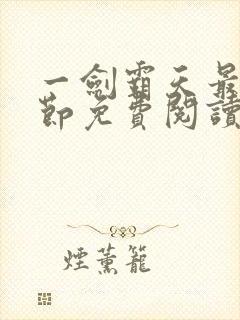 一劍霸天最
節免費閱讀
煙薰籠